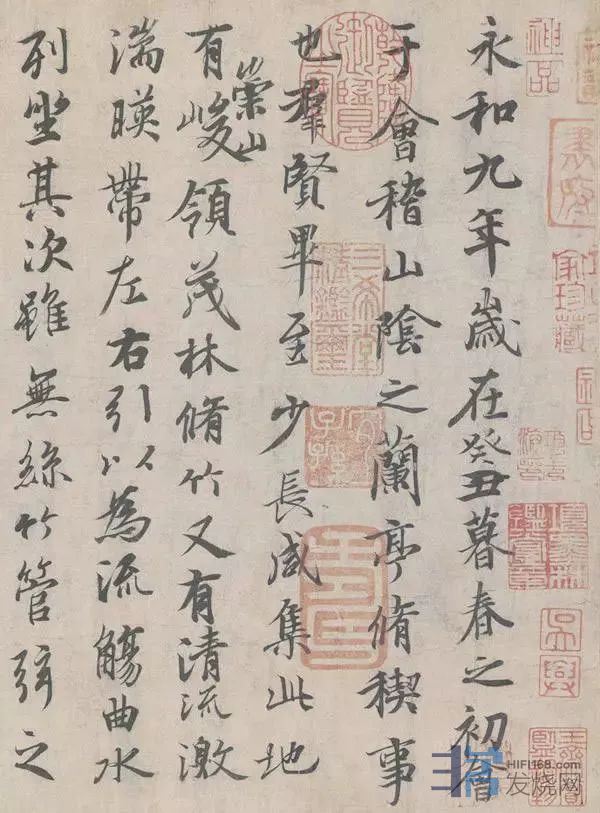 永和九年歲在癸丑暮春之初會
于會稽山陰之蘭亭脩稧事
也羣賢畢至少長咸集此地
有崇山峻領茂林脩竹又有清流激
湍暎帶左右引以為流觴曲水
列坐其次雖無絲竹管弦之
神品
三希堂精鑑璽
家珍藏
吳興
非常
HIFI168.com
发烧网